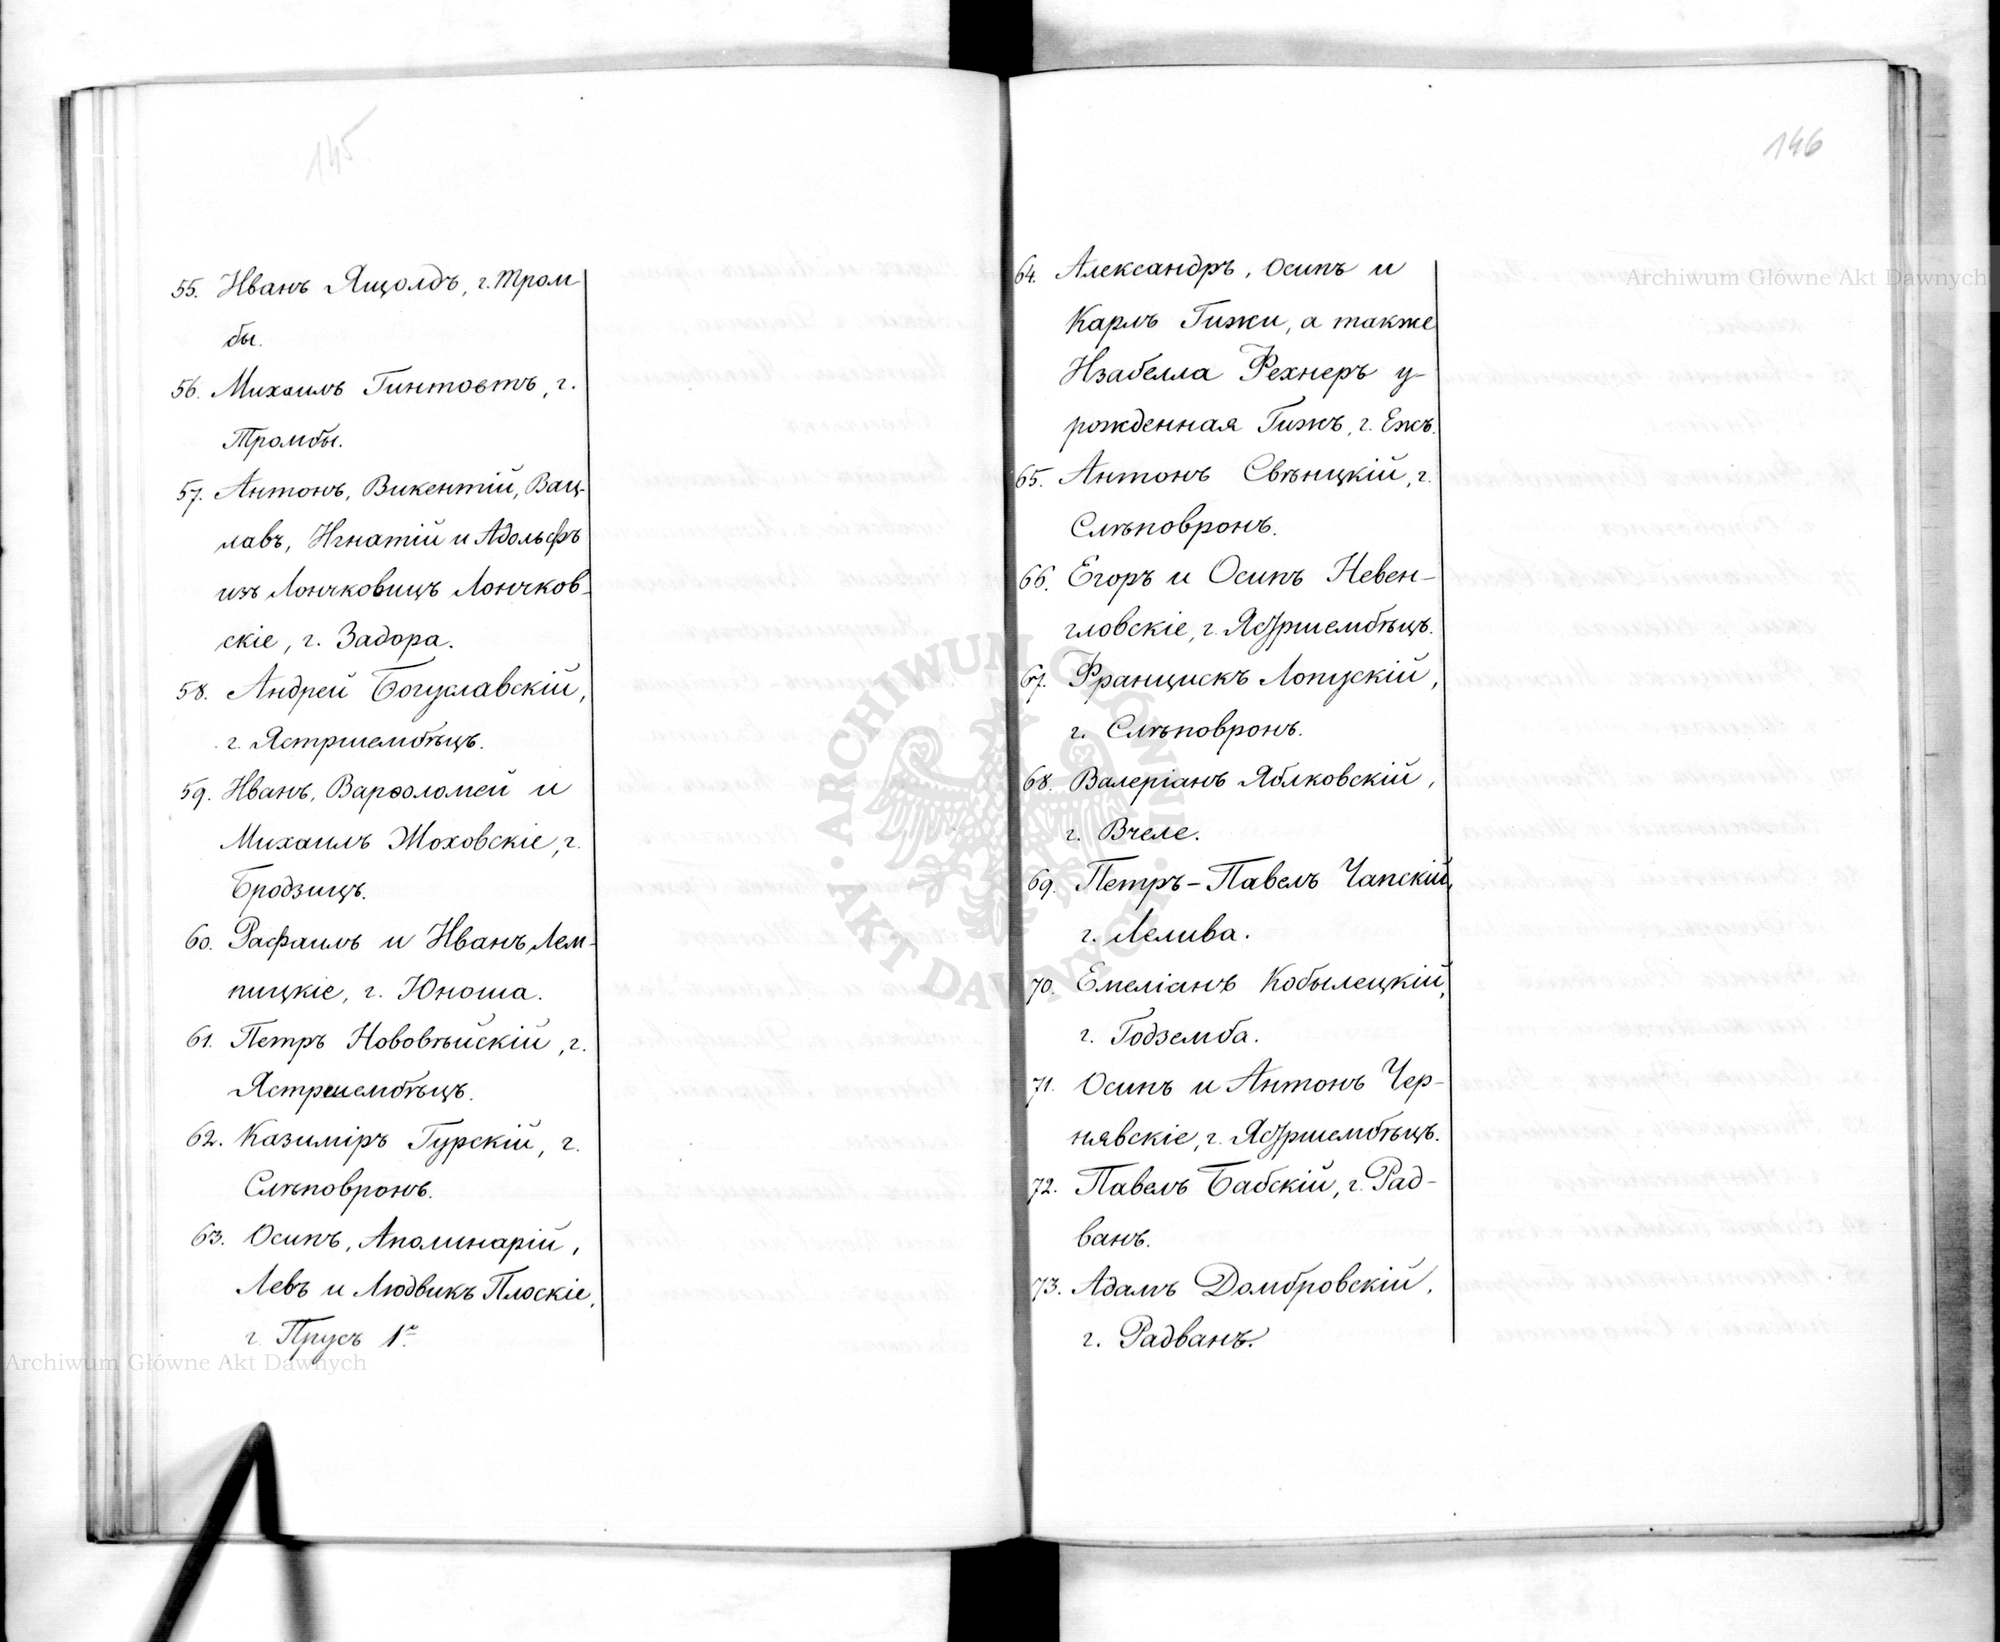 145.
55. Иванъ Ящолдъ, г. Тром
бы.
56. Михаилъ Гинтовтъ, г.
Тромбы.
57. Антонъ, Викентій, Вац-
лавъ, Игнатій и Адольфъ
изъ Лончковицъ Лончков-
скіе, г. Задора.
58. Андрей Богуславскій,
г. Ястршембѣцъ.
59. Иванъ, Варѳоломей и
Михаилъ Жоховскіе, г.
Бродзицъ.
60. Рафаилъ и Иванъ Лем-
пицкіе, г. Юноша.
61. Петръ Нововѣйскій, г.
Ястршембѣцъ.
62. Казиміръ Гурскій, г.
Слѣповронъ.
63. Осипъ, Аполинарій,
Левъ и Людвикъ Плоскіе,
г. Прусъ 1º
Archiwum Główne Akt Dawnych
146
64. Александръ, Осипъ и
Карлъ Гижи, а также
Изабелла Рехнеръ у-
рожденная Гижъ, г. Ежъ.
65. Антонъ Свѣнцкій, г.
Слѣповронъ.
66. Егоръ и Осипъ Невен-
гловскіе, г. Ястршембѣцъ.
67. Францискъ Лопускій,
г. Слѣповронъ.
68. Валеріанъ Яблковскій,
г. Вчеле.
69. Петръ-Павелъ Чапскій,
г. Лелива.
70. Емеліанъ Кобылецкій,
г. Годземба.
71. Осипъ и Антонъ Чер-
нявскіе, г. Ястршембѣцъ.
72. Павелъ Бабскій, г. Рад-
ванъ.
73. Адамъ Домбровскій,
г. Радванъ.
Archiwum Główne Akt Dawnych
ARCHIWUM GŁÓWNE · AKT DAWNYCH ·